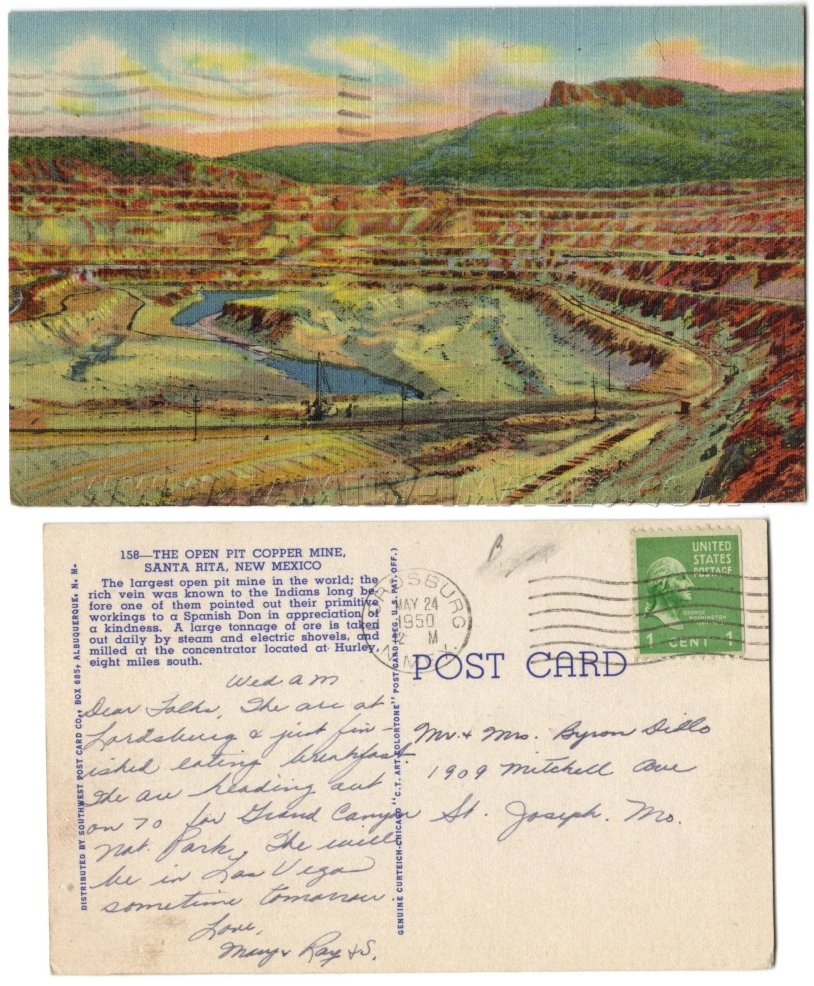 WWW.FAMILY-IMAGES.COM
158—THE OPEN PIT COPPER MINE,
SANTA RITA, NEW MEXICO
The largest open pit mine in the world; the
rich vein was known to the Indians long be-
fore one of them pointed out their primitive
workings to a Spanish Don in appreciation of
a kindness. A large tonnage of ore is taken
out daily by steam and electric shovels, and
milled at the concentrator located at Hurley,
eight miles south.
DISTRIBUTED BY SOUTHWEST POST CARD CO., BOX 685, ALBUQUERQUE, N. M.
GENUINE CURTEICH-CHICAGO "C.T. ART-COLORTONE" POST CARD (REG. U. S. PAT. OFF.)
Wed A M
Dear Folks, We are at
Lordsburg & just fin-
ished eating breakfast.
We are heading out
on 70 for Grand Canyon
Nat. Park. We will
be in Las Vegas
sometime tomorrow.
Love,
Mary & Ray & S.
LORDSBURG
MAY 24
1950
M
N. MEX.
UNITED
STATES
POSTAGE
GEORGE
WASHINGTON
1 CENT 1
POST CARD
Mr. & Mrs. Byron Dillo
1909 Mitchell Ave
St. Joseph. Mo.